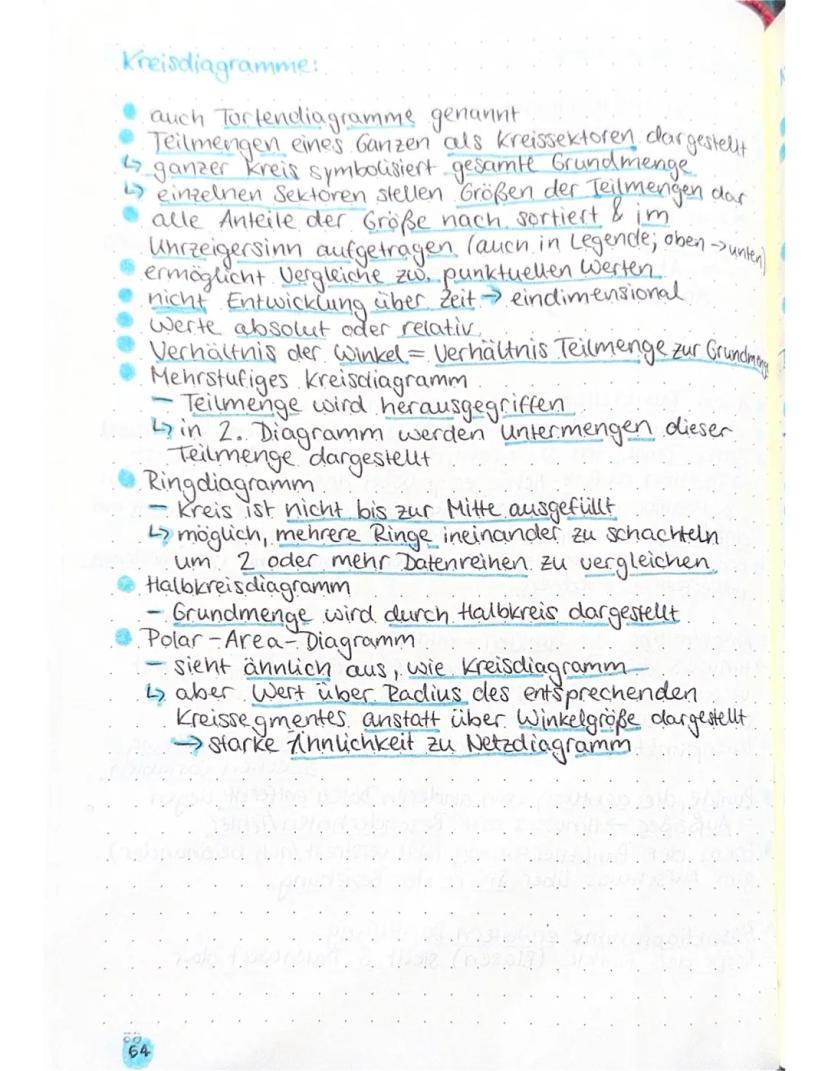 Kreisdiagramme:
auch Tortendiagramme genannt
Teilmengen eines Ganzen als Kreissektoren dargestellt
↳ ganzer Kreis symbolisiert gesamte Grundmenge
↳ einzelnen Sektoren stellen Größen der Teilmengen dar
alle Anteile der Größe nach sortiert & im
Uhrzeigersinn aufgetragen (auch in Legende; oben → unten)
ermöglicht Vergleiche zw. punktuellen Werten
nicht Entwicklung über Zeit → eindimensional
Werte absolut oder relativ
Verhältnis der Winkel = Verhältnis Teilmenge zur Grundmenge
Mehrstufiges Kreisdiagramm
– Teilmenge wird herausgegriffen
↳ in 2. Diagramm werden Untermengen dieser
Teilmenge dargestellt
Ringdiagramm
– Kreis ist nicht bis zur Mitte ausgefüllt
↳ möglich, mehrere Ringe ineinander zu schachteln
um 2 oder mehr Datenreihen zu vergleichen
Halbkreisdiagramm
– Grundmenge wird durch Halbkreis dargestellt
Polar-Area-Diagramm
– sieht ähnlich aus, wie Kreisdiagramm
↳ aber Wert über Radius des entsprechenden
Kreissegmentes anstatt über Winkelgröße dargestellt
→ starke Ähnlichkeit zu Netzdiagramm
64